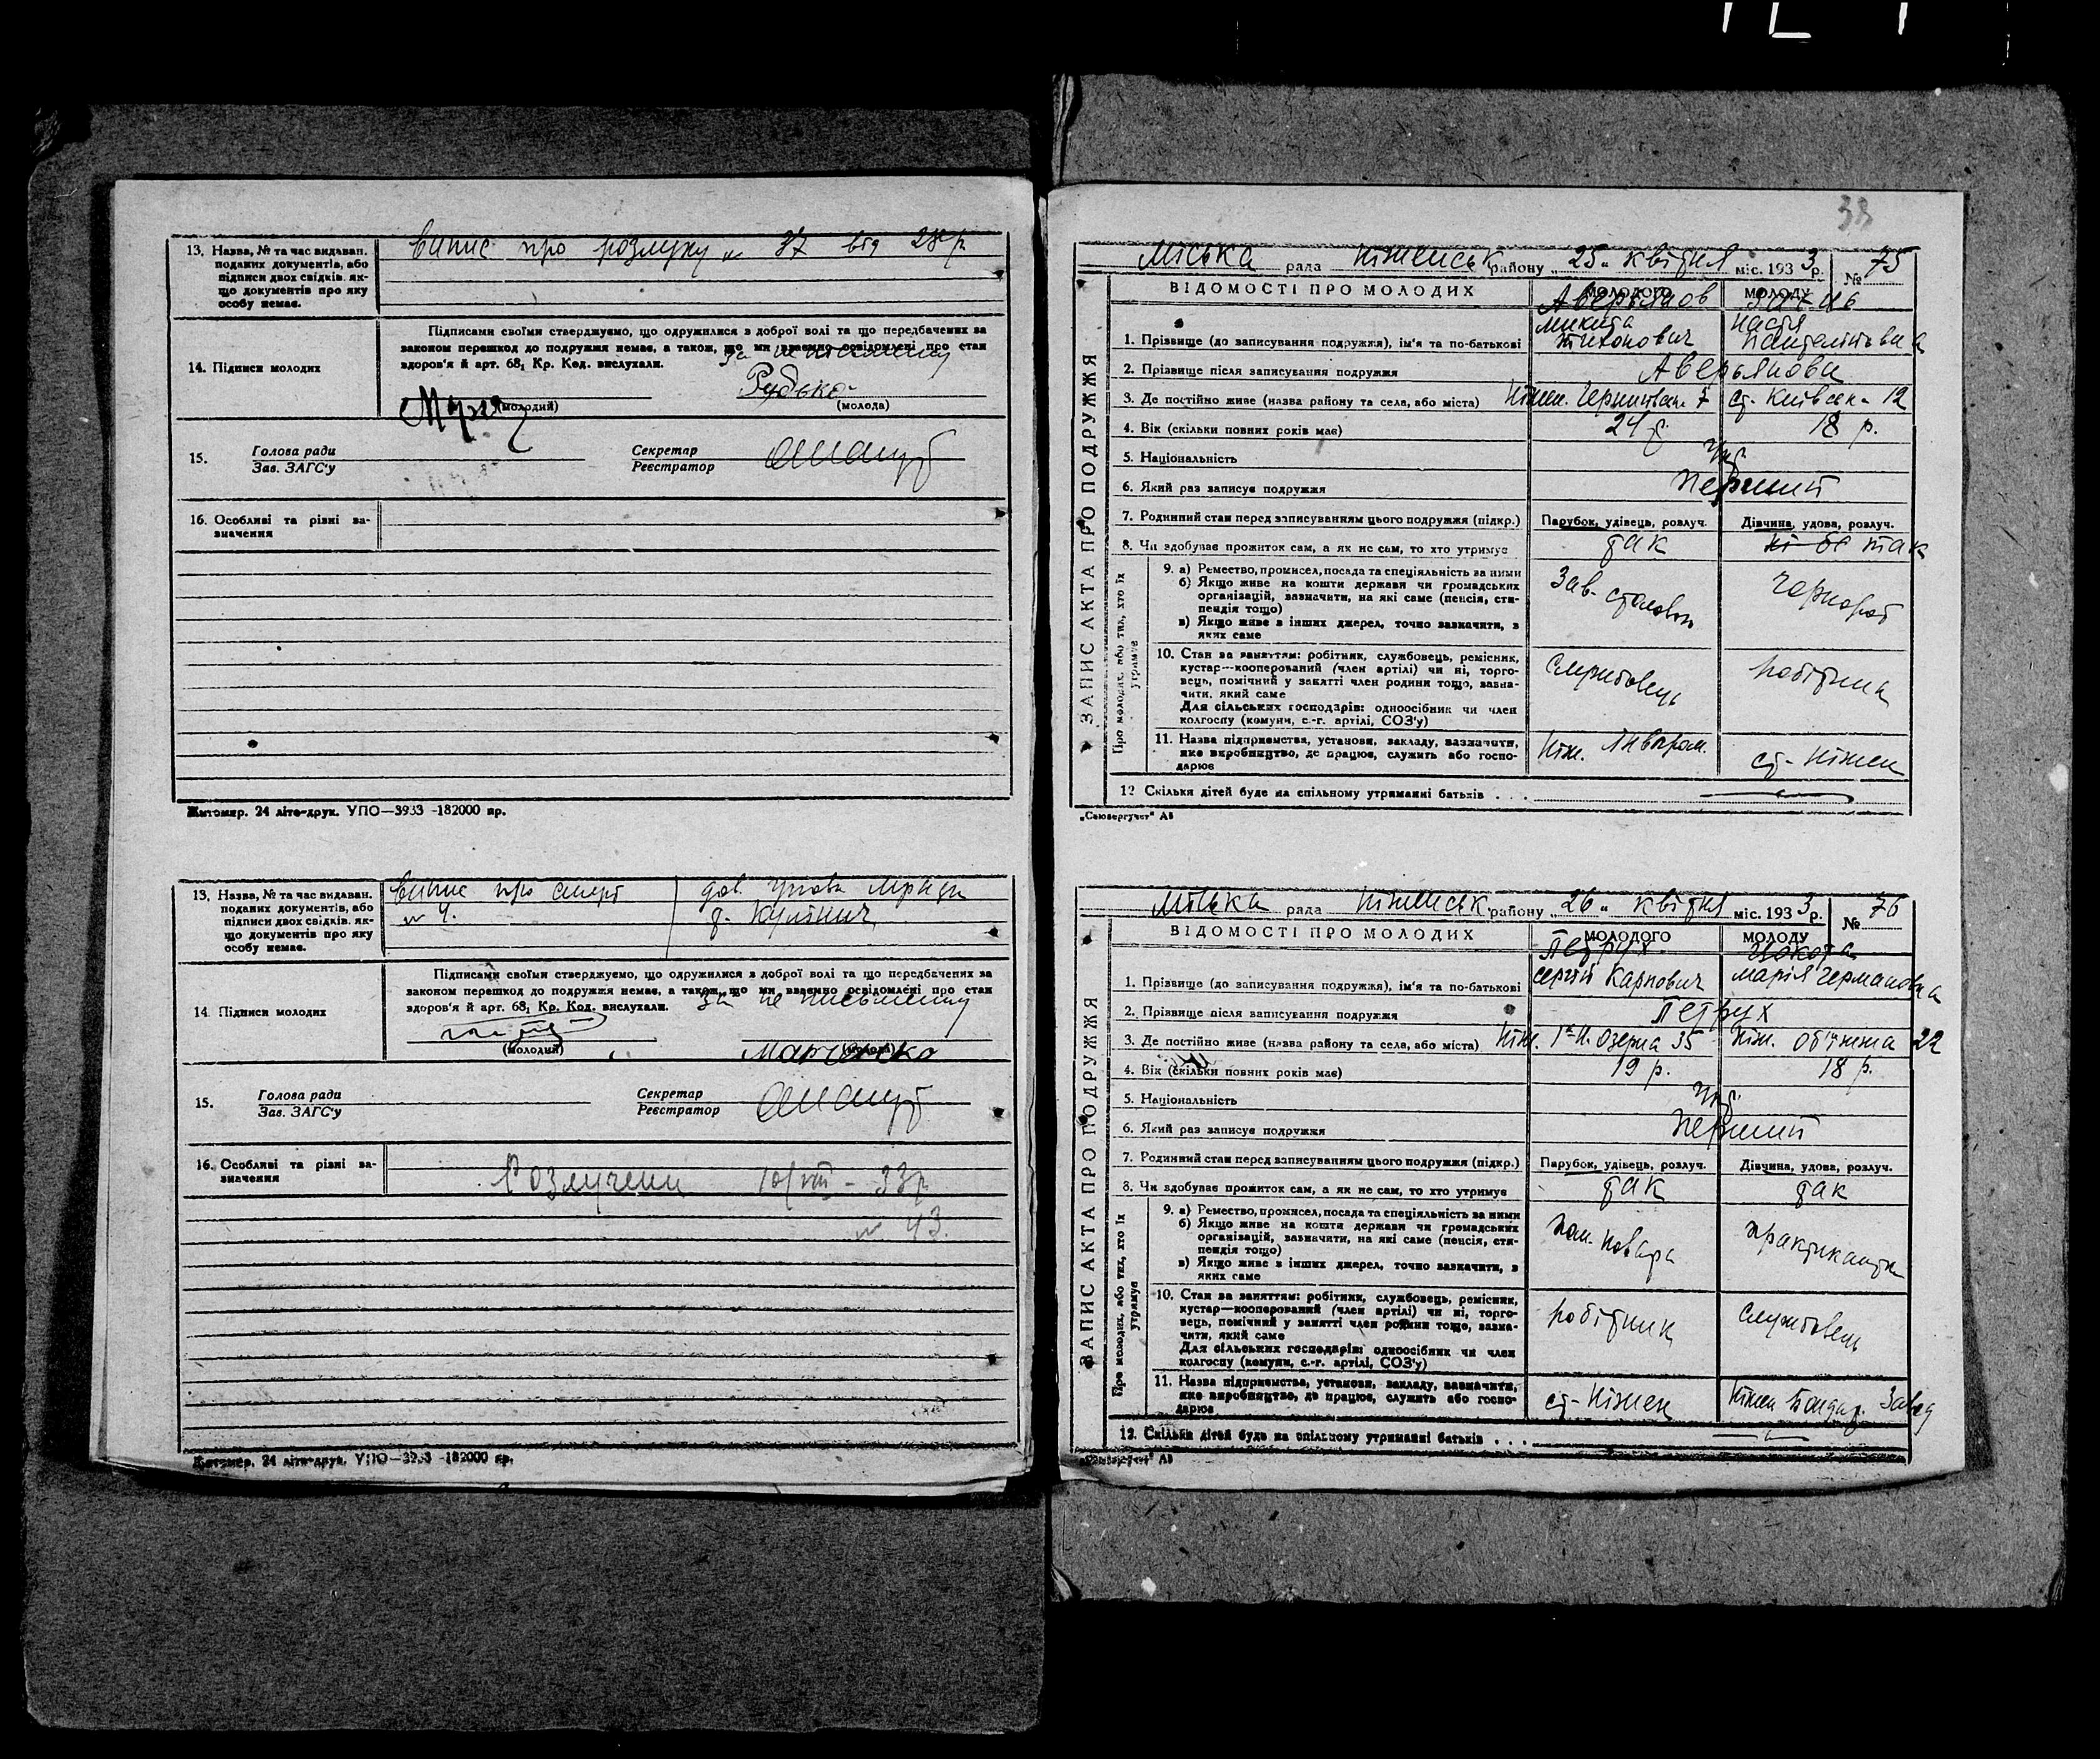 13. Назва, № та час видаван. поданих документів, або підписи двох свідків, якщо документів про яку особу немає.
випис про розлуку № 37 від 28 р
14. Підписи молодих
Підписами своїми стверджуємо, що одружилися з доброї волі та що передбачених за
законом перешкод до подружжя немає, а також, що ми взаємно освідомлені про стан
здоров'я й арт. 68₁ Кр. Код. вислухали.
За
Рудько
(молодий) (молода)
15. Голова ради Секретар
Зав. ЗАГС'у Реєстратор
16. Особливі та різні зазначення
Житомир. 24 літо-друк. УПО—3933 -182000 пр.
13. Назва, № та час видаван. поданих документів, або підписи двох свідків, якщо документів про яку особу немає.
випис про смерт
№ 4.
14. Підписи молодих
Підписами своїми стверджуємо, що одружилися з доброї волі та що передбачених за
законом перешкод до подружжя немає, а також, що ми взаємно освідомлені про стан
здоров'я й арт. 68₁ Кр. Код. вислухали.
За не письменну
(молодий) (молода)
Марченко
15. Голова ради Секретар
Зав. ЗАГС'у Реєстратор
16. Особливі та різні зазначення
Розлучени 10/VIII - 33р
№ 43.
Житомир. 24 літо-друк. УПО—3933 -182000 пр.
38
ЗАПИС АКТА ПРО ПОДРУЖЖЯ
Міська рада Ніженськ району „25„ квітня міс. 1933 р. № 75
ВІДОМОСТІ ПРО МОЛОДИХ МОЛОДОГО МОЛОДУ
Аверьянов
Микита Настя
1. Прізвище (до записування подружжя), ім'я та по-батькові Тихонович Панталіївна
2. Прізвище після записування подружжя Аверьянови
3. Де постійно живе (назва району та села, або міста) Ніжен. 7 ст. Київськ. 12
4. Вік (скільки повних років має) 24 р. 18 р.
5. Національність Укр.
6. Який раз записує подружжя Перший
7. Родинний стан перед записуванням цього подружжя (підкр.) Парубок, удівець, розлуч. Дівчина, удова, розлуч.
8. Чи здобуває прожиток сам, а як не сам, то хто утримує так так
Про молодих, або тих, хто їх утримує
9. а) Ремество, промисел, посада та спеціяльність за ними
б) Якщо живе на кошти держави чи громадських організацій, зазначити, на які саме (пенсія, стипендія тощо)
в) Якщо живе з інших джерел, точно зазначити, з яких саме
Зав. столовою чорнороб
10. Стан за заняттям: робітник, службовець, ремісник, кустар—кооперований (член артілі) чи ні, торговець, помічний у занятті член родини тощо, зазначити, який саме
Для сільських господарів: одноосібник чи член колгоспу (комуни, с.-г. артілі, СОЗ'у)
Службовець робітник
11. Назва підприємства, установи, закладу, зазначити, яке виробництво, де працює, служить або господарює
Ніж. ст. Ніжен
12 Скільки дітей буде на спільному утриманні батьків . . .
„Союзоргучет" А5
ЗАПИС АКТА ПРО ПОДРУЖЖЯ
Міська рада Ніженськ району „26„ квітня міс. 1933 р. № 76
ВІДОМОСТІ ПРО МОЛОДИХ МОЛОДОГО МОЛОДУ
Петрух
1. Прізвище (до записування подружжя), ім'я та по-батькові Сергій Карпович Марія Германовна
2. Прізвище після записування подружжя Петрух
3. Де постійно живе (назва району та села, або міста) Ніж. Озерна 35 Ніж. Об'їжжа 22
4. Вік (скільки повних років має) 19 р. 18 р.
5. Національність Укр.
6. Який раз записує подружжя Перший
7. Родинний стан перед записуванням цього подружжя (підкр.) Парубок, удівець, розлуч. Дівчина, удова, розлуч.
8. Чи здобуває прожиток сам, а як не сам, то хто утримує так так
Про молодих, або тих, хто їх утримує
9. а) Ремество, промисел, посада та спеціяльність за ними
б) Якщо живе на кошти держави чи громадських організацій, зазначити, на які саме (пенсія, стипендія тощо)
в) Якщо живе з інших джерел, точно зазначити, з яких саме
пом. повара практикантка
10. Стан за заняттям: робітник, службовець, ремісник, кустар—кооперований (член артілі) чи ні, торговець, помічний у занятті член родини тощо, зазначити, який саме
Для сільських господарів: одноосібник чи член колгоспу (комуни, с.-г. артілі, СОЗ'у)
робітник службовець
11. Назва підприємства, установи, закладу, зазначити, яке виробництво, де працює, служить або господарює
ст. Ніжен Ніжен Бондар. Завод
12. Скільки дітей буде на спільному утриманні батьків . . .
„Союзоргучет" А5